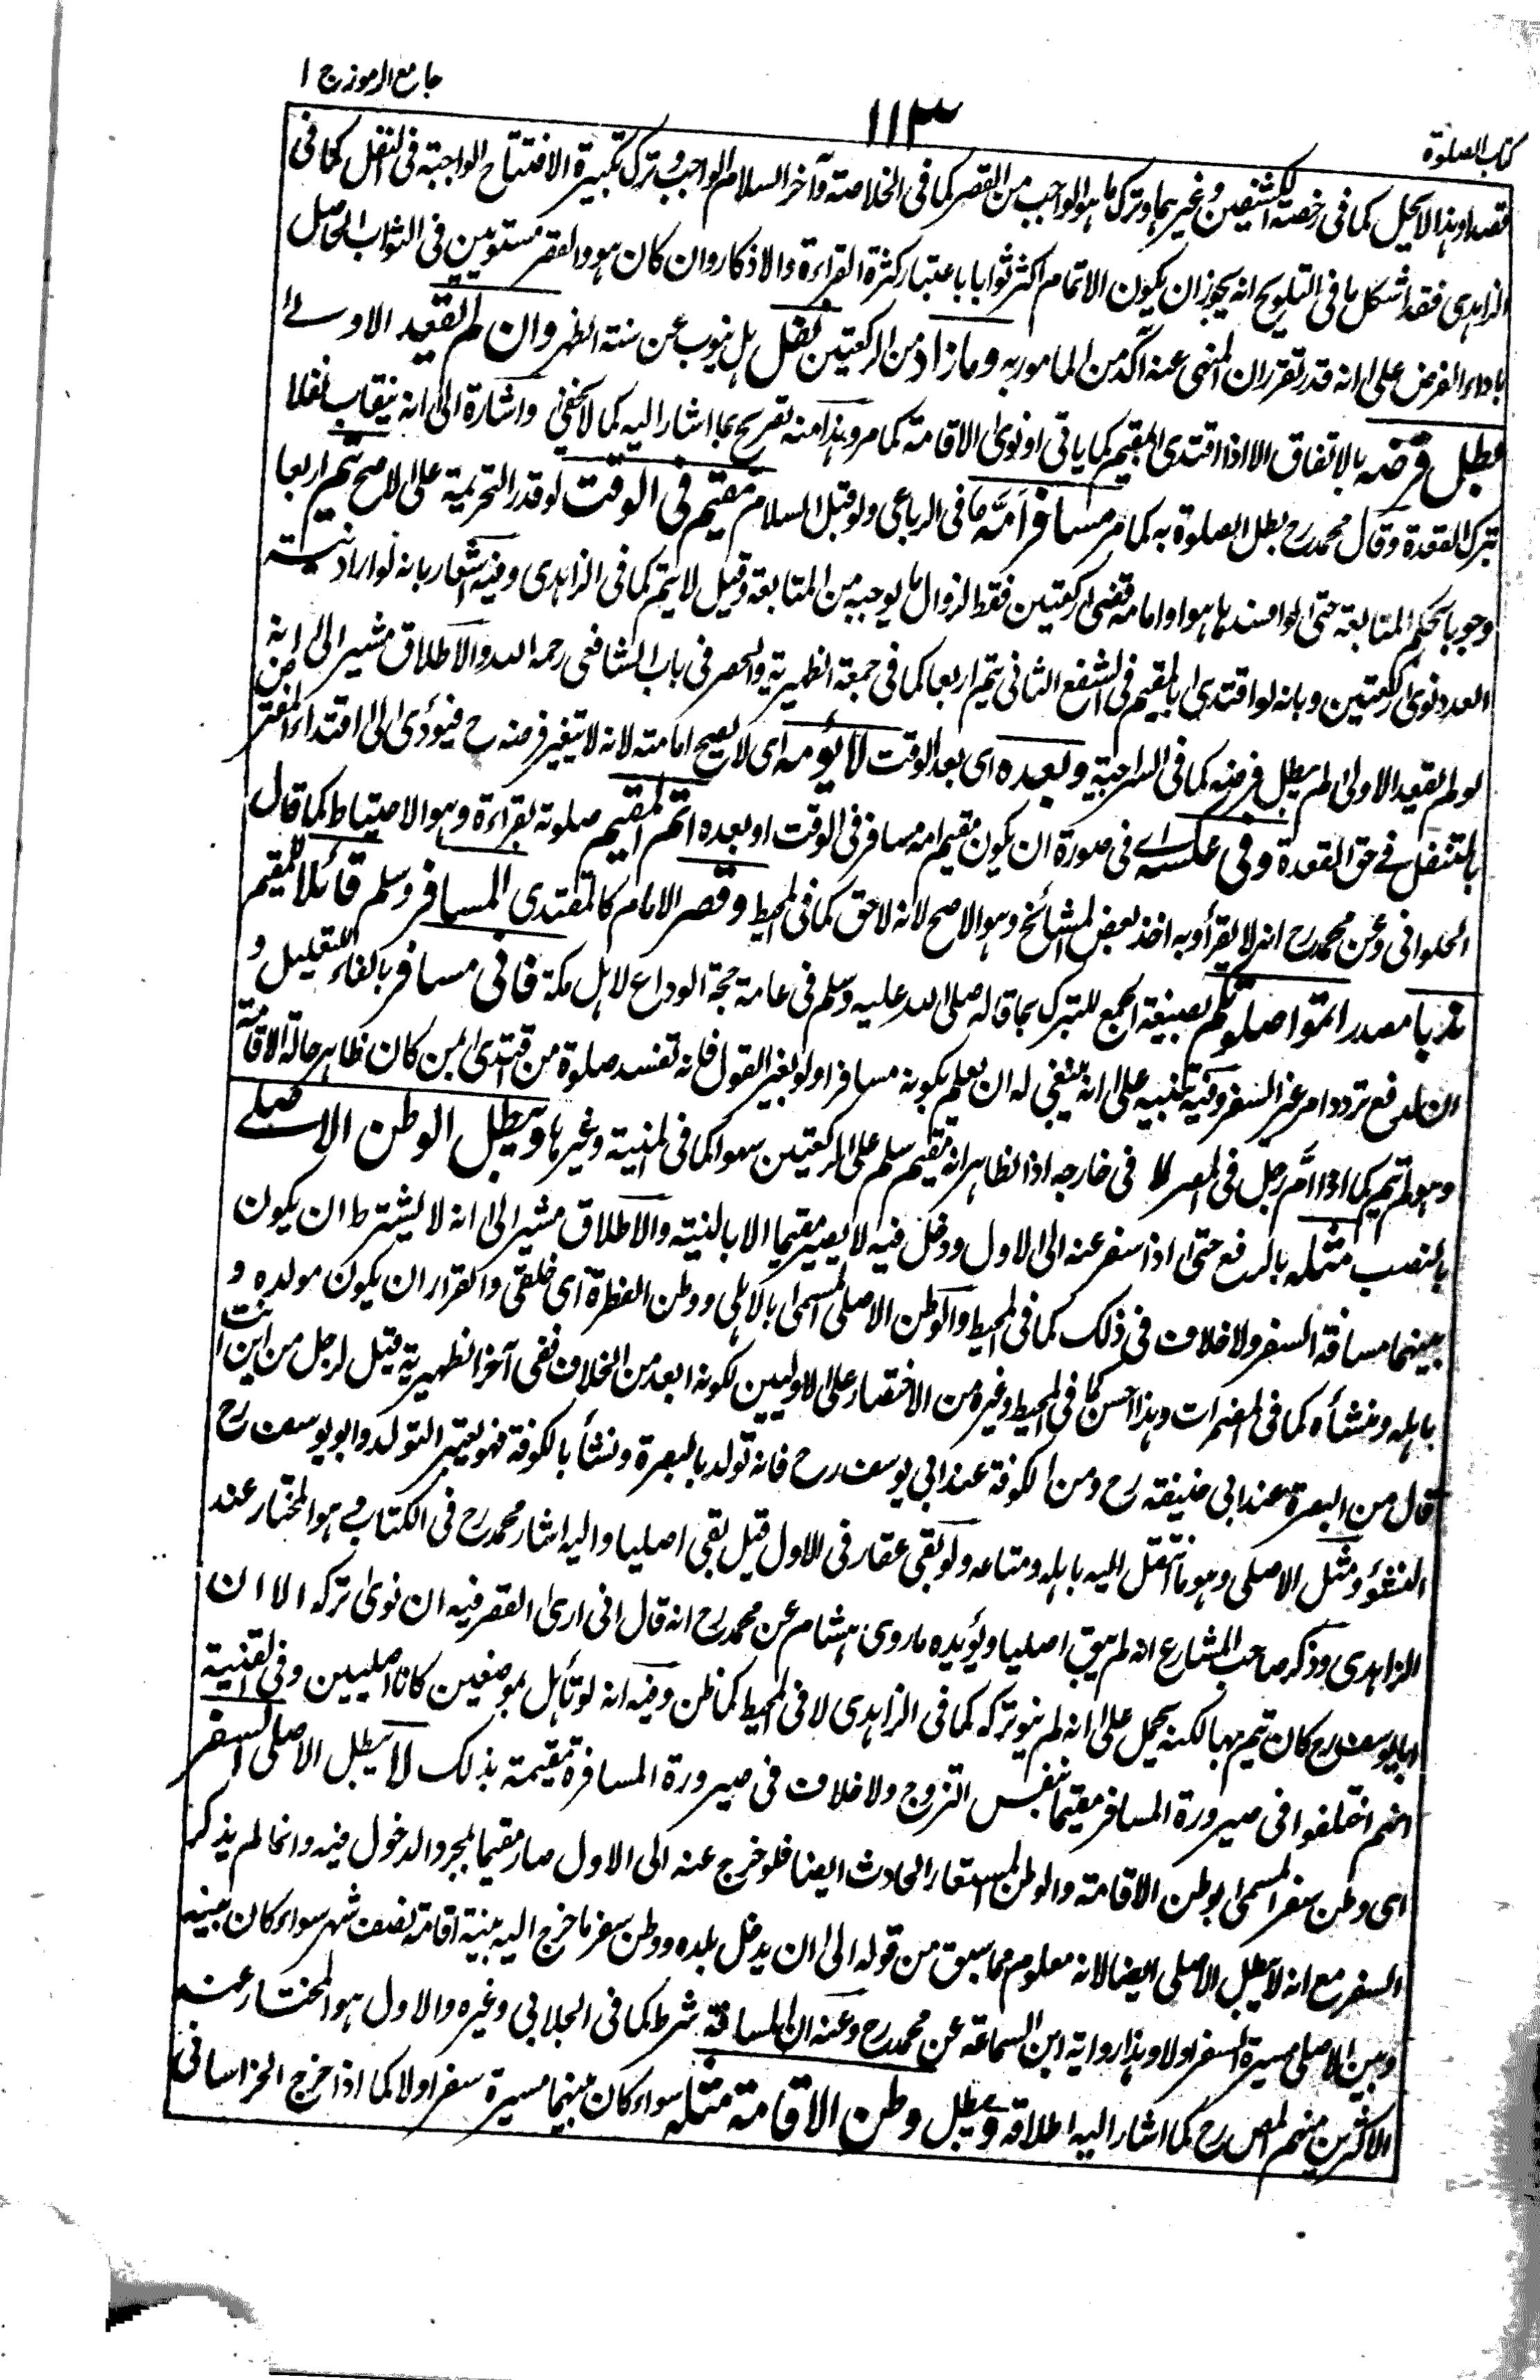 جامع الرموز ج ١
١١٣
كتاب الصلوة
قصدا وهذا لا يحل كما فى رخصة الكشفين وغيرهما وترك ما هو الواجب من القصر كما فى الخلاصة وآخر السلام الواجب وترك تكبيرة الافتتاح الواجبة فى النفل كما فى
الزاهدى فقد اشكل ما فى التلويح انه يجوز ان يكون الاتمام اكثر ثوابا باعتبار كثرة القراءة والاذكار وان كان هو والقصر مستويين فى الثواب الحاصل
باداء الفرض على انه قد تقرر ان المنهى عنه آكد من المامور به وما زاد من الركعتين نفل بل ينوب عن سنة الظهر وان لم يقعد الاولى
بطل فرضه بالاتفاق الا اذا اقتدى المقيم كما ياتى او نوى الاقامة كما مر وهذا منه تصريح بما اشار اليه كما لا يخفى واشارة الى انه ينقلب نفلا
بترك القعدة وقال محمد رح بطل الصلوة به كما مر مسافر أمّه ما فى الرباعى ولو قبل السلام مقيم فى الوقت لو قدر التحريمة على الاصح يتم اربعا
وجوبا بحكم المتابعة حتى لو افسداها هو او امامه قضى ركعتين فقط لزوال ما يوجبه من المتابعة وقيل لا يتم كما فى الزاهدى وفيه اشعار بانه لو اراد نية
العدد نوى ركعتين وبانه لو اقتدى بالمقيم فى الشفع الثانى يتم اربعا كما فى جمعة الظهيرية والحصر فى باب الشافعى رحمه الله والاطلاق مشير الى انه
لو لم يقعد الاولى لم يبطل فرضه كما فى السراجية وبعده اى بعد الوقت لا يؤمه اى لا يصح امامته لانه لا يتغير فرضه ح فيؤدى الى اقتداء المفترض
بالمتنفل فى حق القعدة وفى عكسه اى فى صورة ان يكون مقيم امه مسافر فى الوقت او بعده اتم المقيم صلوته بقراءة وهو الاحتياط كما قال
الحلوانى وعن محمد رح انه لا يقرأ وبه اخذ بعض المشائخ وهو الاصح لانه لاحق كما فى المحيط وقصر الامام كالمقتدى المسافر وسلم قائلا للمقيم
ندبا مصدر اتموا صلوتكم بصيغة الجمع للتبرك بما قاله صلى الله عليه وسلم فى عامة حجة الوداع لاهل مكة فانى مسافر بالفاء للتعليل و
ان لدفع تردد امر غير السفر وفيه تنبيه على انه ينبغى له ان يعلم بكونه مسافرا ولو بغير القول فانه تفسد صلوة من اقتدى بمن كان ظاهر حاله الاقامة
وهو لم يتم كما اذا أمّ رجل فى المصر لا فى خارجه اذ الظاهر انه مقيم سلم على الركعتين سهوا كما فى المنية وغيرها ويبطل الوطن الاصلى
بالنصب مثله بالرفع حتى اذا سفر عنه الى الاول ودخل فيه لا يصير مقيما الا بالنية والاطلاق مشير الى انه لا يشترط ان يكون
بينهما مسافة السفر ولا خلاف فى ذلك كما فى المحيط والوطن الاصلى المسمى بالاهلى ووطن الفطرة اى خلقى والقرار ان يكون مولده و
باهله ومنشأه كما فى المضمرات وهذا احسن كما فى المحيط وغيره من الاختصار على الاوليين لكونه ابعد من الخلاف ففى آخر الظهيرية قيل لرجل من اين انت
قال من البصرة عند ابى حنيفة رح ومن الكوفة عند ابى يوسف رح فانه تولد بالبصرة ونشأ بالكوفة فهو يعتبر التولد وابو يوسف رح
النشؤ ومثل الاصلى وهو ما انتقل اليه باهله ومتاعه ولو بقى عقار فى الاول قيل بقى اصليا واليه اشار محمد رح فى الكتاب وهو المختار عند
الزاهدى وذكر صاحب المشارع انه لم يبق اصليا ويؤيده ما روى هشام عن محمد رح انه قال انى ارى القصر فيه ان نوى تركه الا ان
ابا يوسف رح كان يتم بها لكنه يحمل على انه لم ينو تركه كما فى الزاهدى لا فى المحيط كما ظن وفيه انه لو تأهل بموضعين كانا اصليين وفى القنية
انهم اختلفوا فى صيرورة المسافر مقيما بنفس التزوج ولا خلاف فى صيرورة المسافرة مقيمة بذلك لا يبطل الاصلى السفر
اى وطن سفر المسمى بوطن الاقامة والوطن المستعار الحادث ايضا فلو خرج عنه الى الاول صار مقيما بمجرد الدخول فيه وانما لم يذكر
السفر مع انه لا يبطل الاصلى ايضا لانه معلوم مما سبق من قوله الى ان يدخل بلده ووطن سفر ما خرج اليه بنية اقامة نصف شهر سواء كان بينه
وبين الاصلى مسيرة السفر او لا وهذا رواية ابن السماعة عن محمد رح وعنه ان المسافة شرط كما فى الجلابى وغيره والاول هو المختار عند
الاكثرين منهم المص رح كما اشار اليه اطلاقه ويبطل وطن الاقامة مثله سواء كان بينهما مسيرة سفر او لا كما اذا خرج الخراسانى